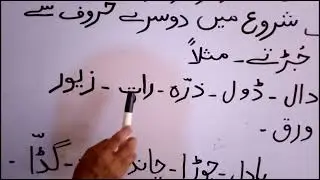 شروع میں دوسرے حروف سے
جُڑتے - مثلاً
دال - ڈول - ذرّہ - رات - زیور
ورق -
بادل - جوڑا - چاند - گڈّا -